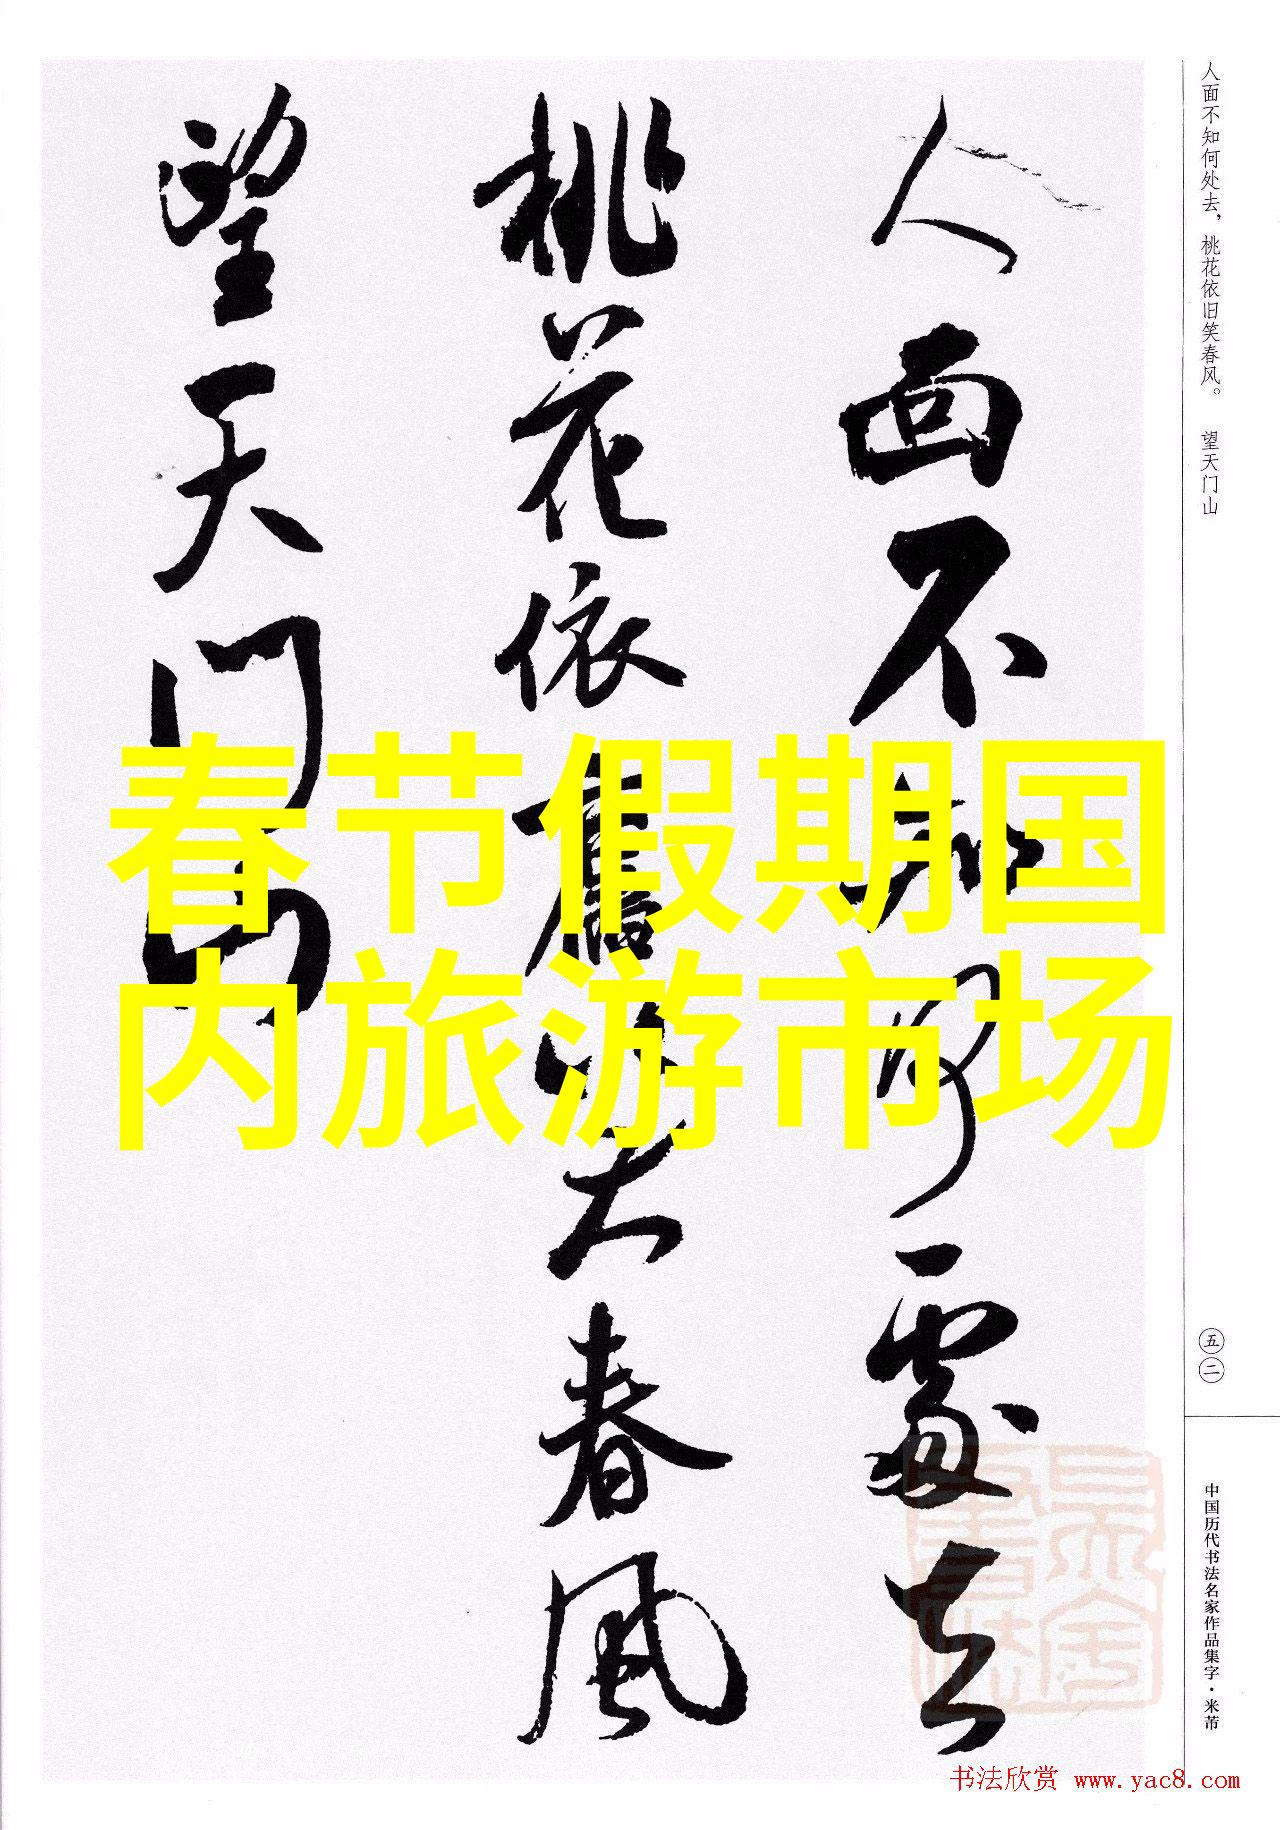 人面不知何处去，桃花依旧笑春风。 望天门山
人面不知何處去
桃花依舊笑春風
望天門山
春节假期国
内旅游市场
五二
中国历代书法名家作品集字·米芾
书法欣赏 www.yac8.com